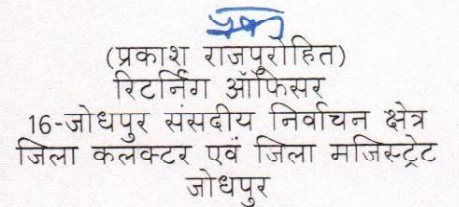 (प्रकाश राजपुरोहित)
रिटर्निंग ऑफिसर
16-जोधपुर संसदीय निर्वाचन क्षेत्र
जिला कलक्टर एवं जिला मजिस्ट्रेट
जोधपुर